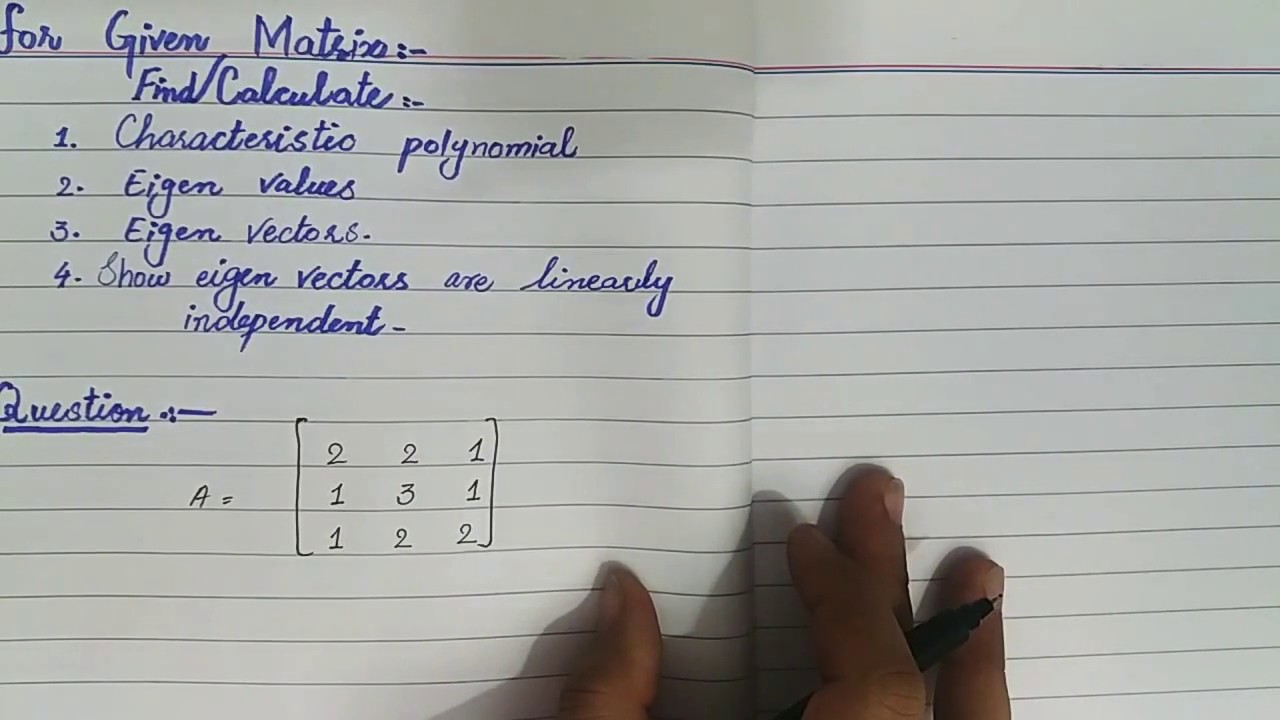 for Given Matrix:-
Find/Calculate:-
1. Characteristic polynomial
2. Eigen values
3. Eigen vectors.
4. Show eigen vectors are linearly
independent-
Question:-
A = [ 2 2 1
1 3 1
1 2 2 ]